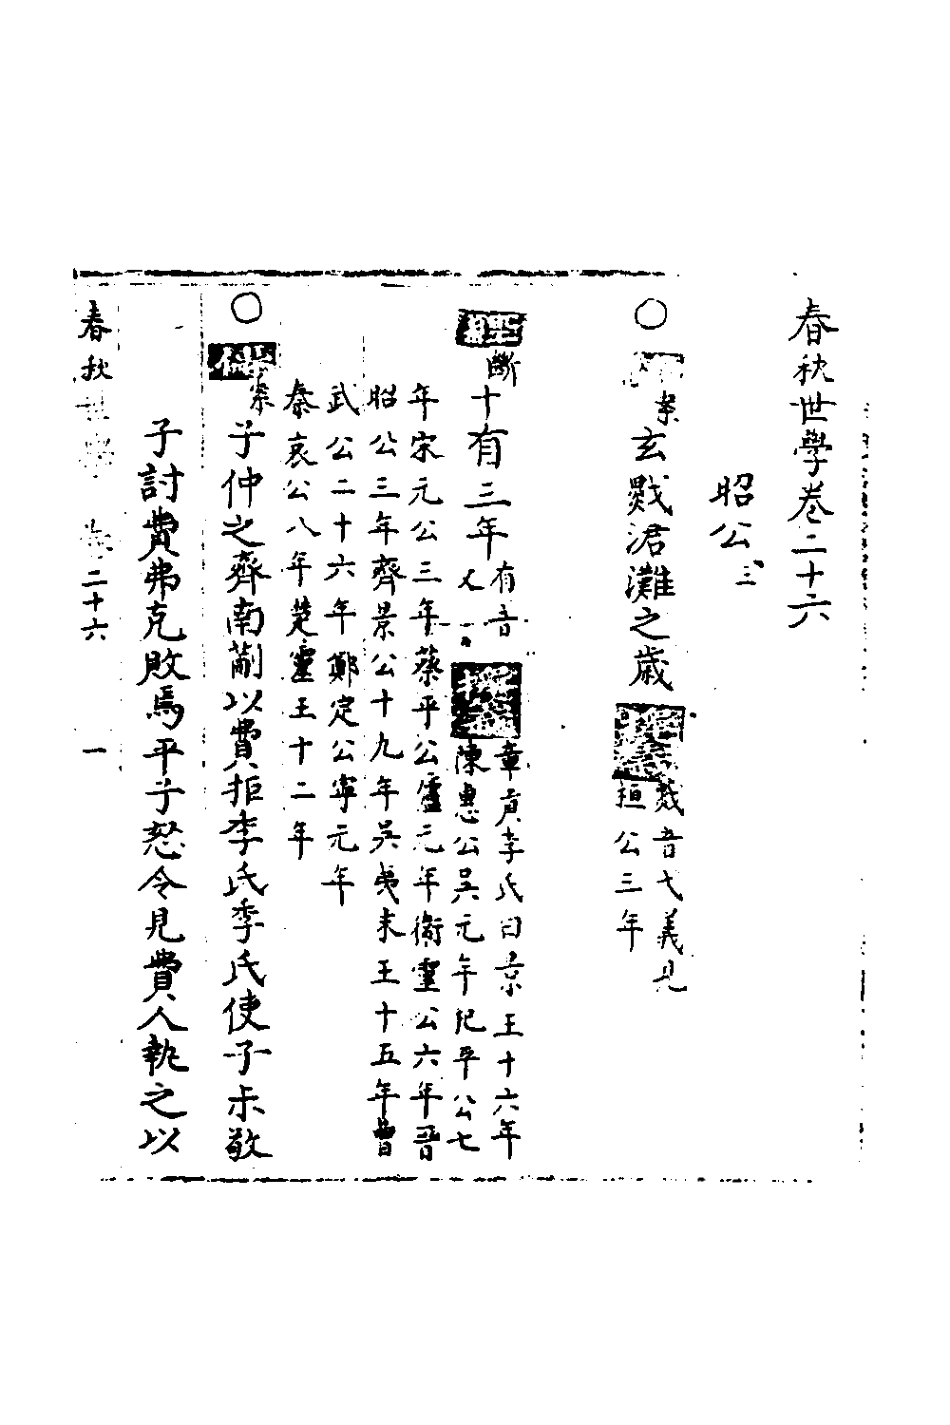 春秋世學卷二十六
昭公三
○案玄黓涒灘之歲
黓音弋義見
桓公三年
斷十有三年
有音
又
章貢李氏曰景王十六年
陳惠公吳元年杞平公七
年宋元公三年蔡平公廬元年衛靈公六年晉
昭公三年齊景公十九年吳夷末王十五年曹
武公二十六年鄭定公寧元年
秦哀公八年楚靈王十二年
○案子仲之齊南蒯以費拒季氏季氏使子叔敬
子討費弗克敗焉平子怒令見費人執之以
春秋世學 卷二十六 一